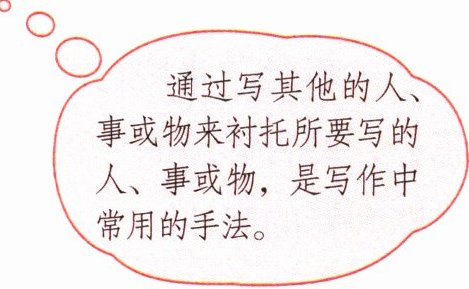 通过写其他的人、
事或物来衬托所要写的
人、事或物，是写作中
常用的手法。